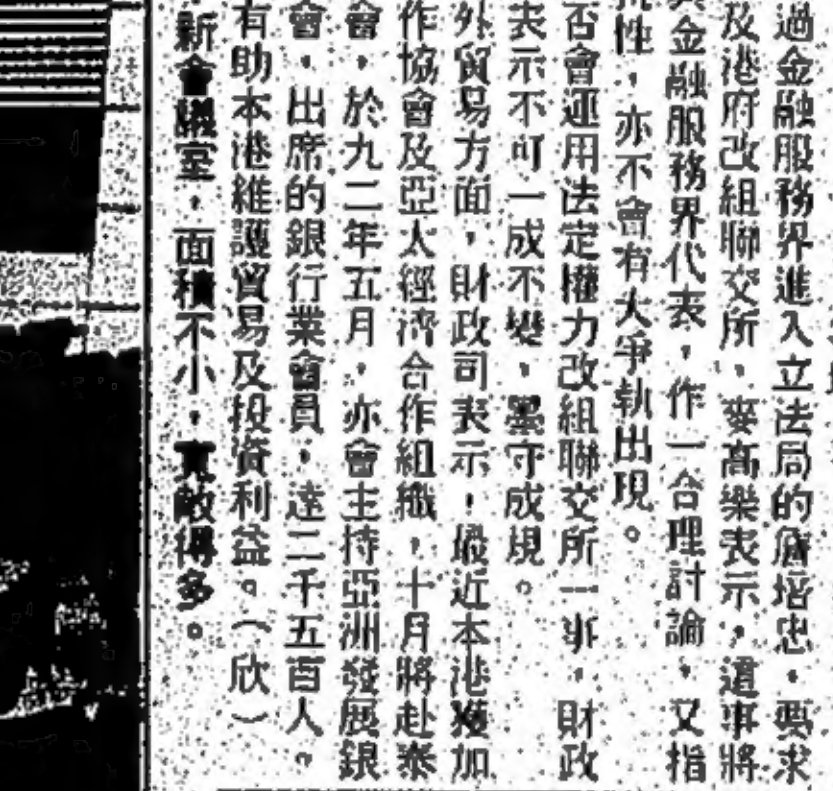 過金融服務界進入立法局的詹培忠，要求
及港府改組聯交所，麥高樂表示，這事將
金融服務界代表，作一合理討論，又指
性，亦不會有大爭執出現。
否會運用法定權力改組聯交所一事，財政
表示不可一成不變，墨守成規。
外貿易方面，財政司表示，最近本港獲加
作協會及亞太經濟合作組織，十月將赴泰
會，於九二年五月，亦會主持亞洲發展銀
會，出席的銀行業會員，達二千五百人。
有助本港維護貿易及投資利益。（欣）
新會議室，面積不小，寬敞得多。